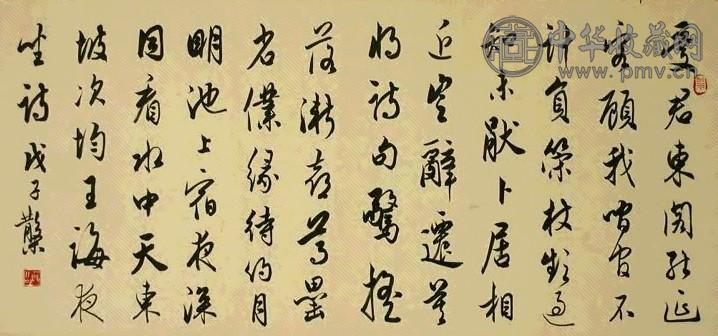 愛君東閣能延
客顧我閒官不
計員策杖頻過
知未猒卜居相
近豈辭遷莫
將詩句驚搖
落漸喜尊罍
省僕緣待約月
明池上宿夜深
同看水中天東
坡次均王誨夜
坐詩戊子
中华收藏网
www.pmv.cn